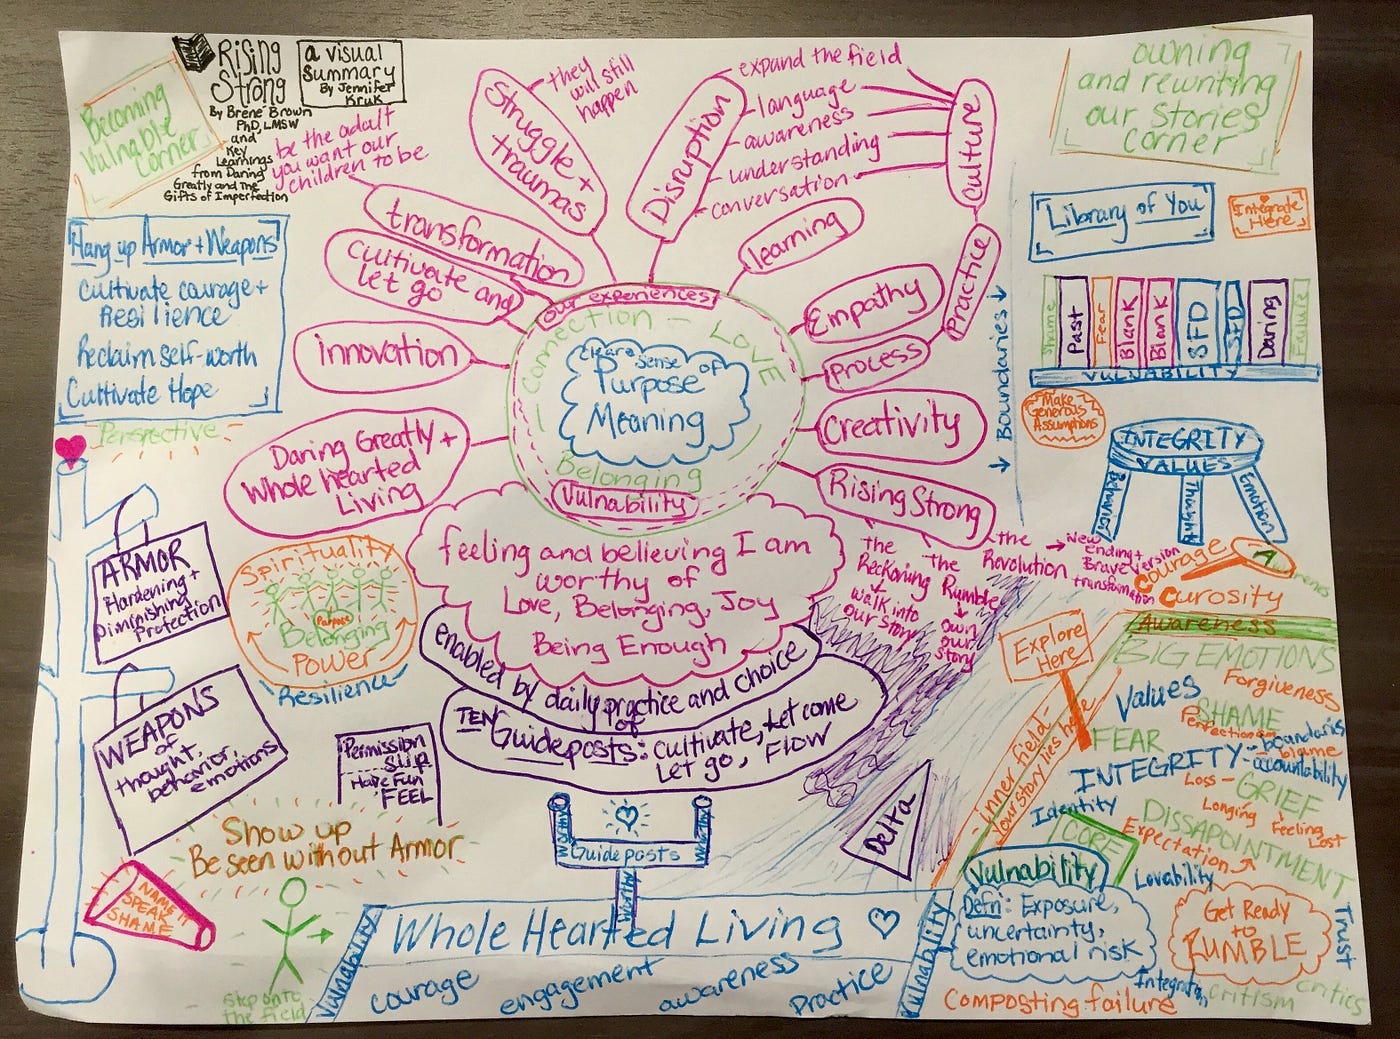 Rising
Strong
By Brené Brown
PhD, LMSW
and
Key
Learnings
from Daring
Greatly and The
Gifts of Imperfection
a visual
Summary
By Jennifer
Kruk
Becoming
Vulnerable
Corner
be the adult
you want our
children to be
transformation
cultivate and
let go
innovation
Daring Greatly +
Whole hearted
Living
Struggle +
traumas
they
will still
happen
Disruption
expand the field
language
awareness
understanding
conversation
Culture
Practice
learning
Empathy
process
Creativity
Rising Strong
our experiences!
Connection - LOVE
Belonging
Clear sense of
Purpose
Meaning
Vulnerability
feeling and believing I am
worthy of
Love, Belonging, Joy
Being Enough
enabled by daily practice and choice
of
TEN Guideposts: cultivate, let come
Let go, Flow
the
Reckoning
walk into
our story
the
Rumble
own
our
story
the
Revolution
New
ending +
Brave version
transformation
Boundaries
owning
and rewriting
our stories
corner
Library of You
Integrate
Here!
Shame
Past
Fear
Blank
Blank
SFD
SFD
Daring
Failure
VULNERABILITY
Make
Generous
Assumptions
INTEGRITY
VALUES
Behavior
Emotion
Courage
Curosity
Awareness
BIG EMOTIONS
Explore
Here
inner field-
your story lies here
Values
Forgiveness
SHAME
Perfectionism
FEAR
INTEGRITY
- boundaries
- blame
- accountability
Loss -
GRIEF
Identity
Longing
Feeling
Lost
DISSAPOINTMENT
CORE
Expectation
Lovability
Vulnerability
Defn: Exposure,
uncertainty,
emotional risk
Get Ready
to
RUMBLE
Trust
Integrity
critism
critics
Composting failure
Delta
Hang up Armor + Weapons
Cultivate courage +
Resilience
Reclaim self-worth
Cultivate Hope
Perspective
ARMOR
Hardening +
Diminishing
Protection
WEAPONS
of
thought,
behavior,
emotions
Spirituality
Purpose
Belonging
POWER
Resilience
Permission
Slip
Have Fun
FEEL
Show up
Be seen without Armor
NAME IT
SPEAK
SHAME
Step onto
the field
Worthy
Worthy
Guideposts
Worthy
Vulnerability
Whole Hearted Living
Vulnerability
courage
engagement
awareness
Practice